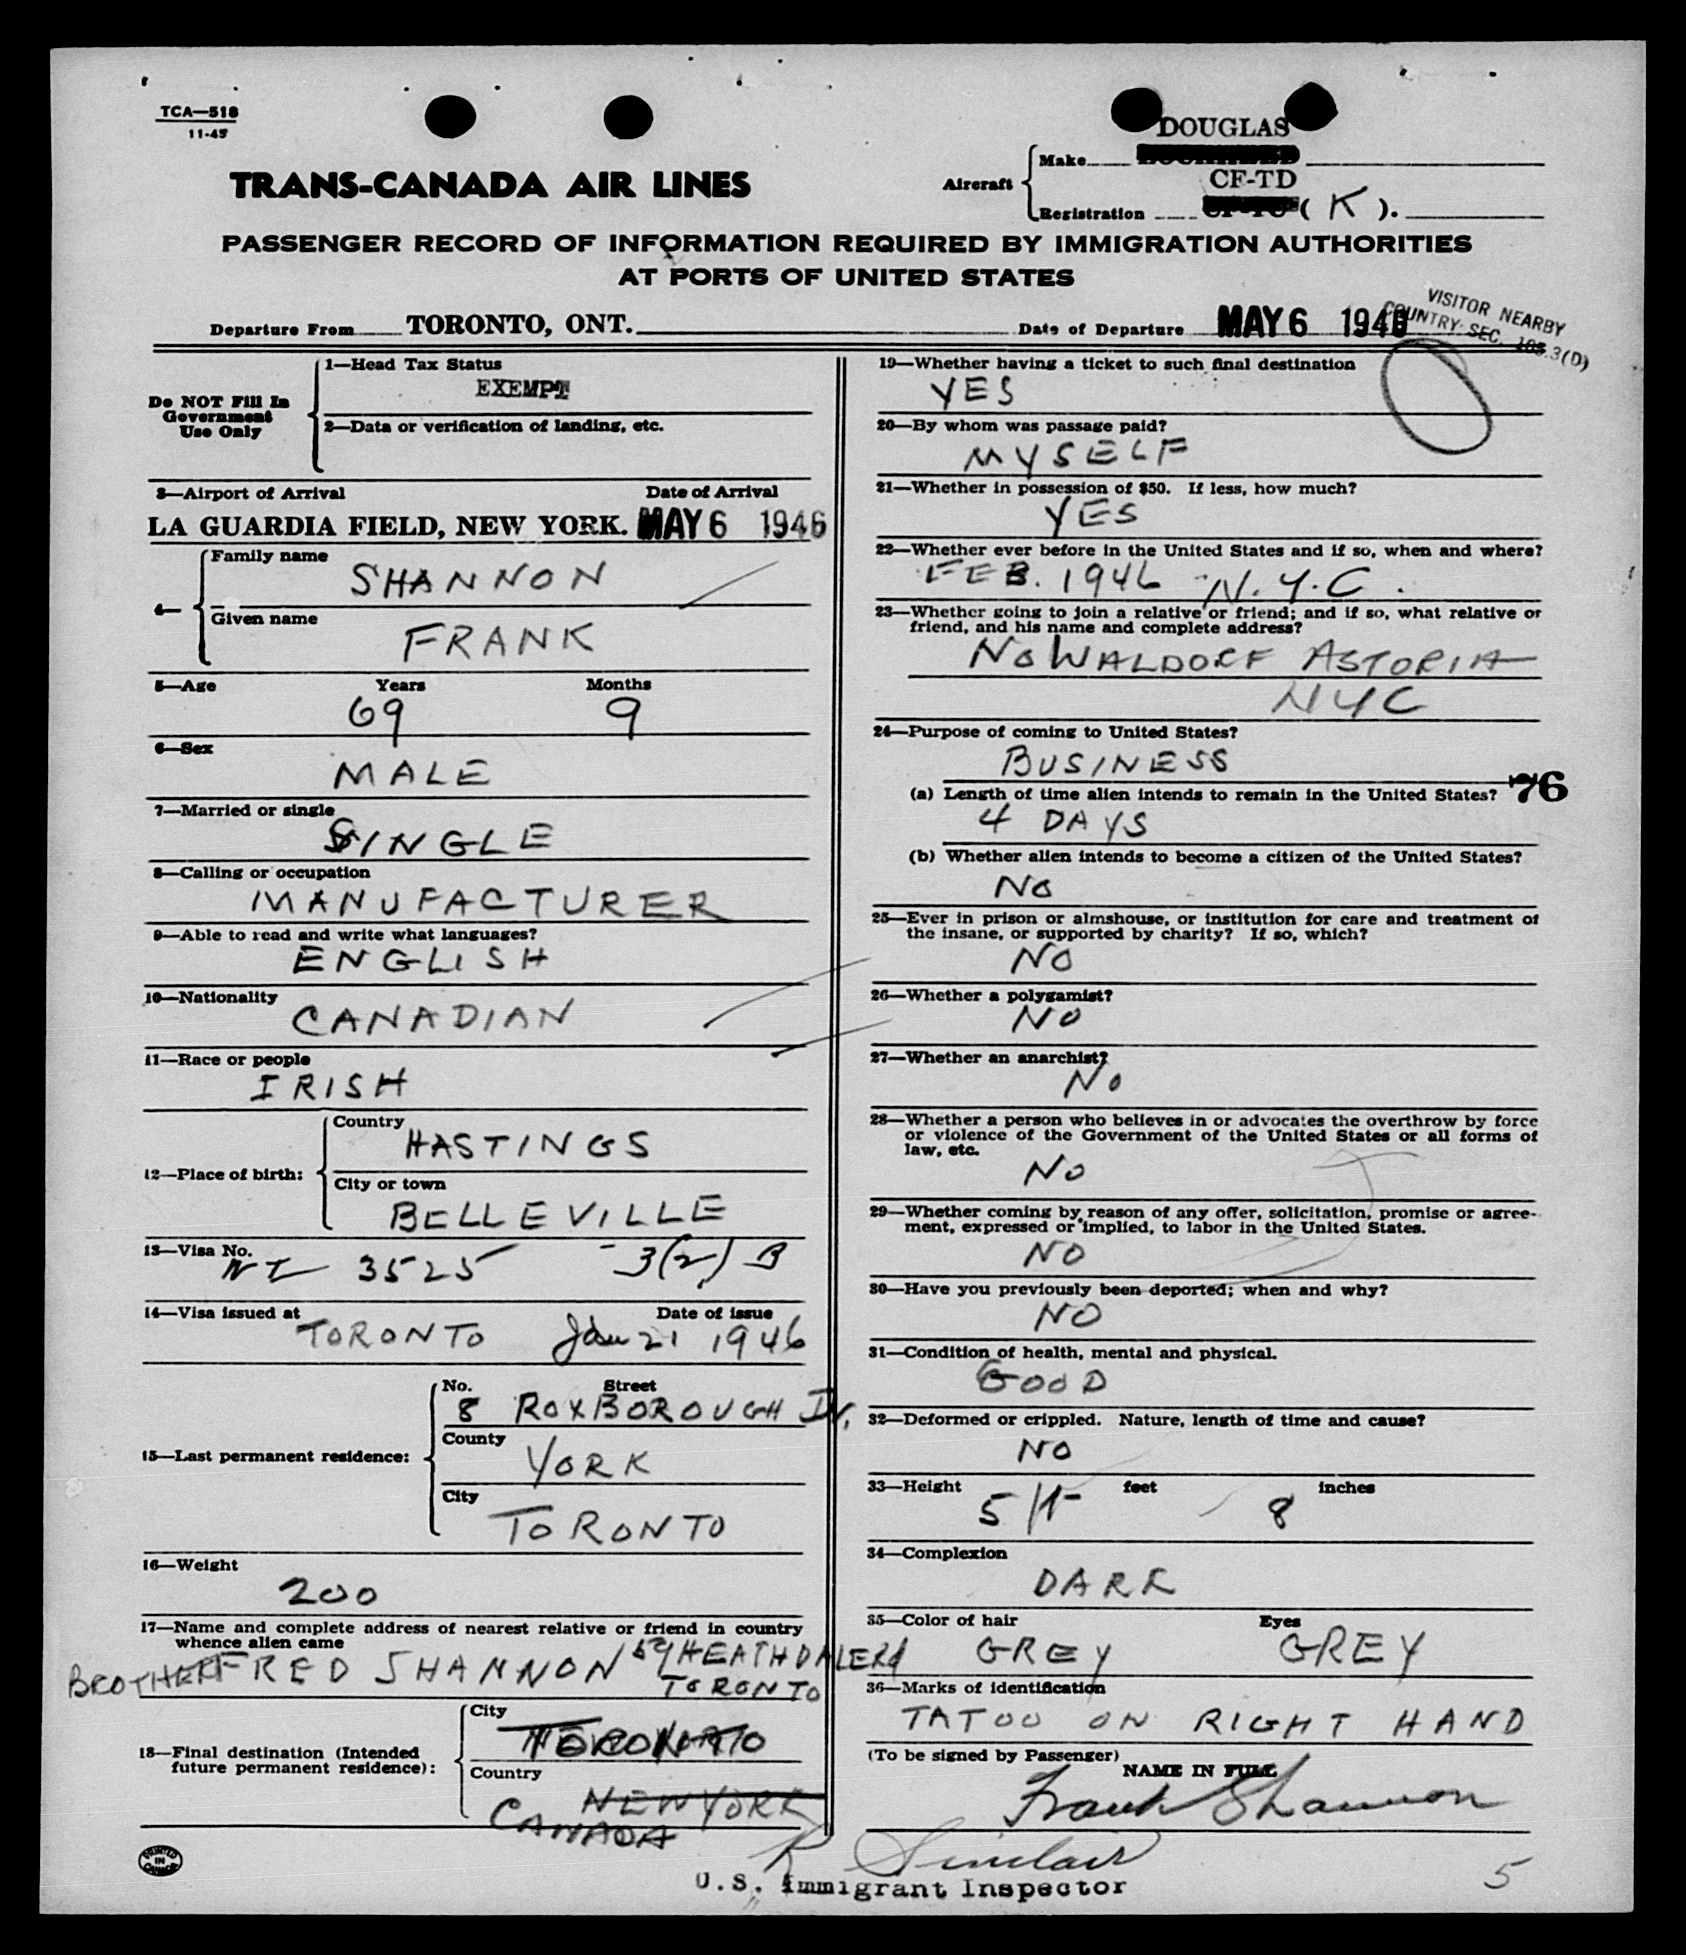 TCA—518
11-45
DOUGLAS
Make
TRANS-CANADA AIR LINES
Aircraft
CF-TD
Registration ( K ).
PASSENGER RECORD OF INFORMATION REQUIRED BY IMMIGRATION AUTHORITIES
AT PORTS OF UNITED STATES
VISITOR NEARBY
COUNTRY: SEC. 3(D)
Departure From TORONTO, ONT. Date of Departure MAY 6 1946
Do NOT Fill In
Government
Use Only
1—Head Tax Status
EXEMPT
2—Data or verification of landing, etc.
3—Airport of Arrival Date of Arrival
LA GUARDIA FIELD, NEW YORK. MAY 6 1946
4—
Family name
SHANNON
Given name
FRANK
5—Age Years Months
69 9
6—Sex
MALE
7—Married or single
SINGLE
8—Calling or occupation
MANUFACTURER
9—Able to read and write what languages?
ENGLISH
10—Nationality
CANADIAN
11—Race or people
IRISH
12—Place of birth:
Country
HASTINGS
City or town
BELLEVILLE
13—Visa No.
3525 3(2) B
14—Visa issued at Date of issue
TORONTO Jan 21 1946
15—Last permanent residence:
No. Street
8 ROXBOROUGH
County
YORK
City
TORONTO
16—Weight
200
17—Name and complete address of nearest relative or friend in country
whence alien came
BROTHER FRED SHANNON HEATHDALE Rd
TORONTO
18—Final destination (Intended
future permanent residence):
City
TORONTO
Country
NEW YORK
CANADA
PRINTED
IN
CANADA
19—Whether having a ticket to such final destination
YES
20—By whom was passage paid?
MYSELF
21—Whether in possession of $50. If less, how much?
YES
22—Whether ever before in the United States and if so, when and where?
FEB. 1946 N.Y.C.
23—Whether going to join a relative or friend; and if so, what relative or
friend, and his name and complete address?
NO WALDORF ASTORIA
NYC
24—Purpose of coming to United States?
BUSINESS
76
(a) Length of time alien intends to remain in the United States?
4 DAYS
(b) Whether alien intends to become a citizen of the United States?
NO
25—Ever in prison or almshouse, or institution for care and treatment of
the insane, or supported by charity? If so, which?
NO
26—Whether a polygamist?
NO
27—Whether an anarchist?
NO
28—Whether a person who believes in or advocates the overthrow by force
or violence of the Government of the United States or all forms of
law, etc.
NO
29—Whether coming by reason of any offer, solicitation, promise or agree-
ment, expressed or implied, to labor in the United States.
NO
30—Have you previously been deported; when and why?
NO
31—Condition of health, mental and physical.
GOOD
32—Deformed or crippled. Nature, length of time and cause?
NO
33—Height feet inches
5 ft 8
34—Complexion
DARK
35—Color of hair Eyes
GREY GREY
36—Marks of identification
TATOO ON RIGHT HAND
(To be signed by Passenger)
NAME IN FULL
Frank Shannon
R Sinclair
U.S. Immigrant Inspector
5